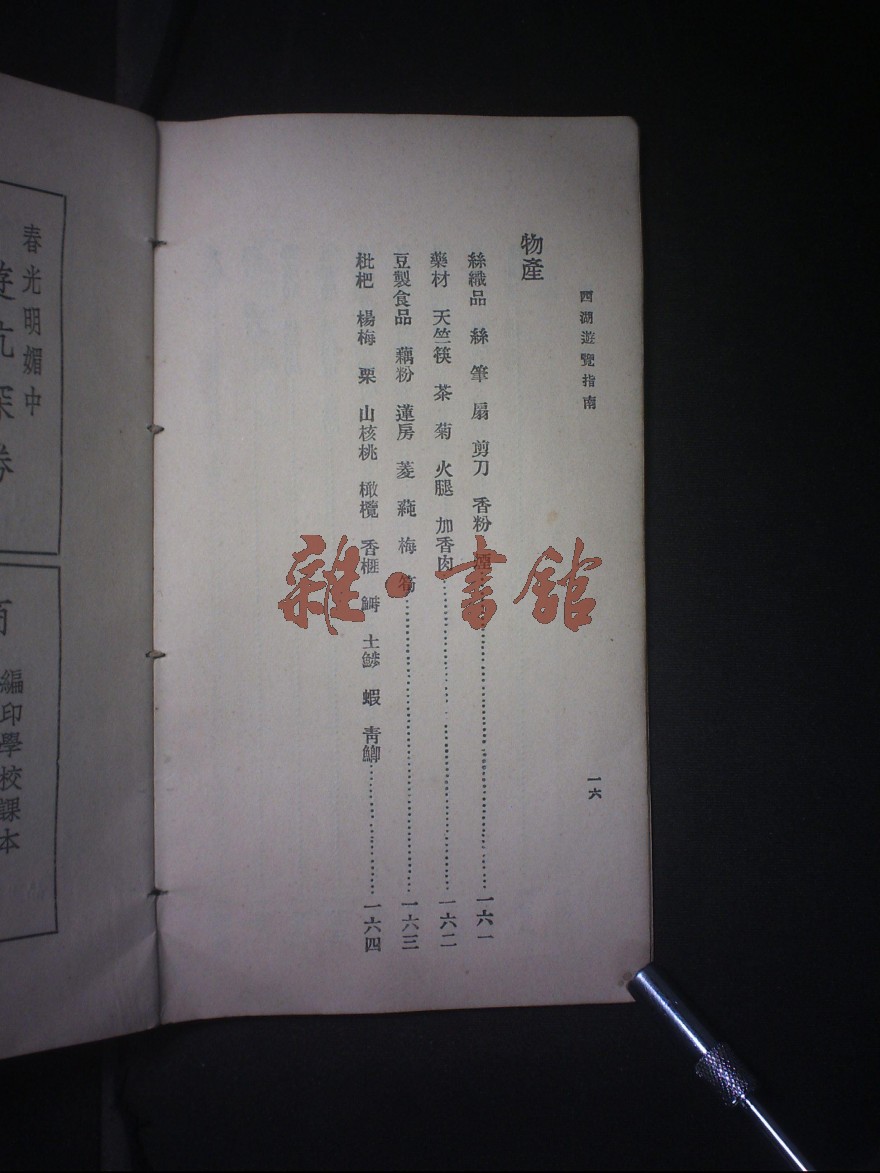 西湖遊覽指南
一六
物產
絲織品 絲 筆 扇 剪刀 香粉 煙……一六一
藥材 天竺筷 茶 菊 火腿 加香肉……一六二
豆製食品 藕粉 蓮房 菱 蒓 梅 筍……一六三
枇杷 楊梅 栗 山核桃 橄欖 香榧 鰣 土鯵 蝦 青鯽……一六四
雜·書館
春光明媚中
編印學校課本